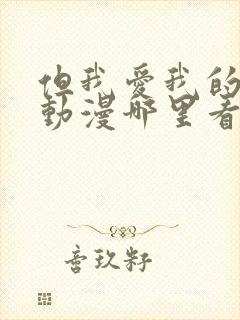 但我愛我的
動漫哪里看
音玖籽